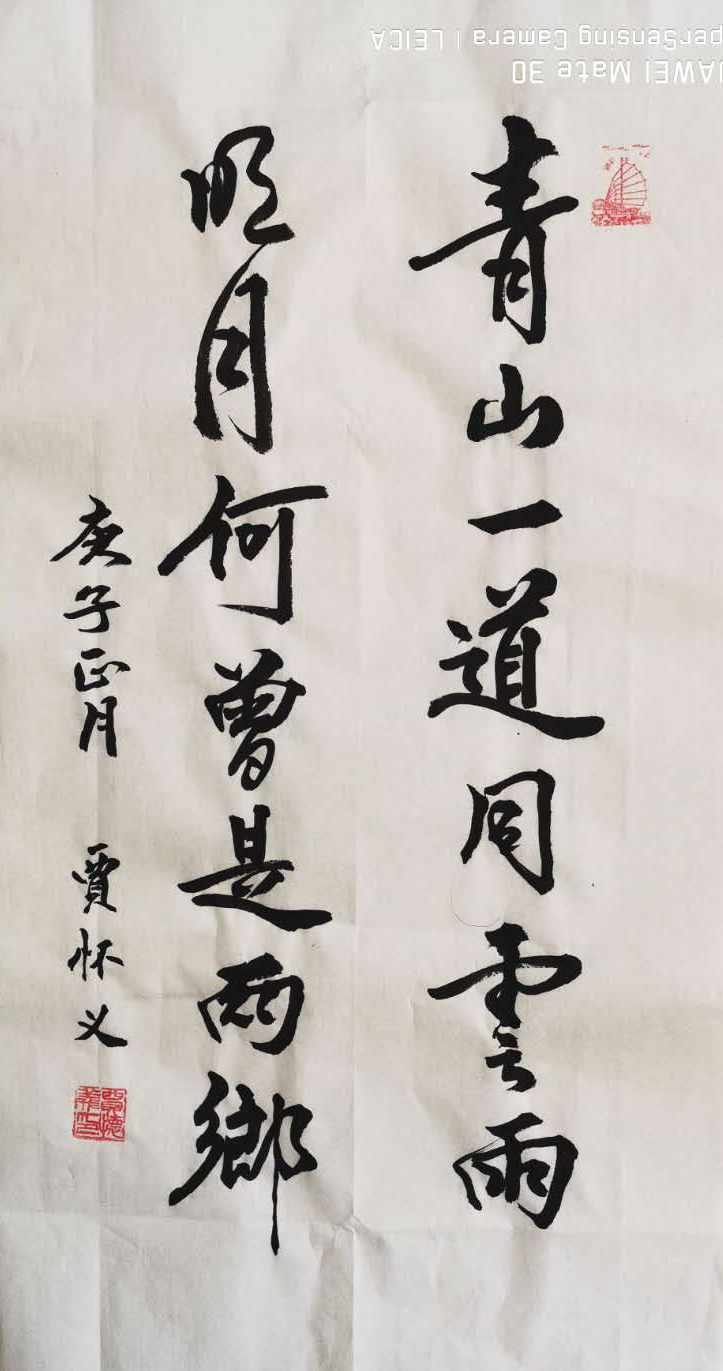 青山一道同雲雨
明月何曾是兩鄉
庚子正月 賈怀义
HUAWEI Mate 30
SuperSensing Camera | LEICA